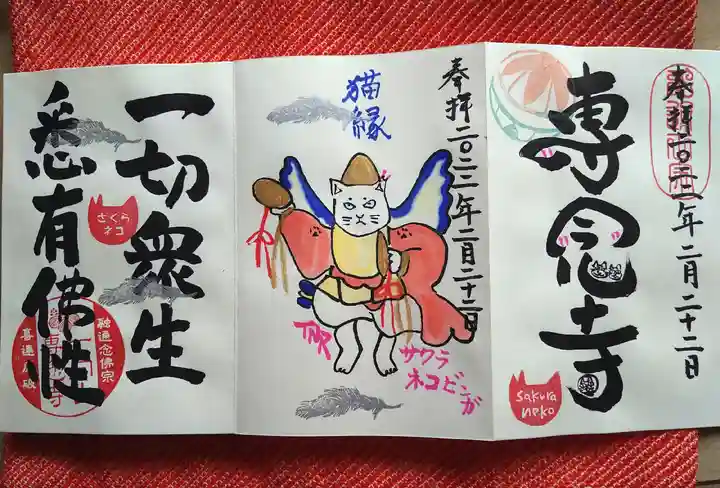 奉拝二〇二二年二月二十二日
専念寺
sakura
neko
奉拝二〇二二年二月二十二日
猫縁
TNR
サクラ
ネコビンガ
一切衆生
悉有佛性
さくら
ネコ
融通念佛宗
喜連